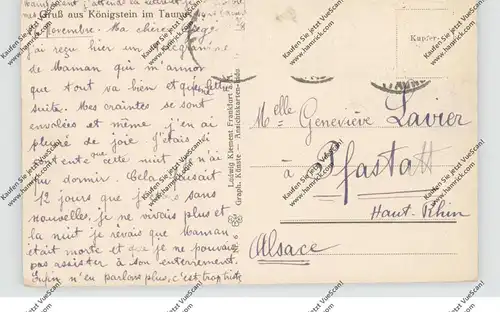 tranquillement j'attends la
Gruß aus Königstein im Taunus
Novembre. Ma chère
j'ai reçu hier un télégramme
de Maman qui m'annonce
que tout va bien et
suite. Mes craintes se sont
envolées et même j'en ai
pleuré de joie. J'étais si
cette nuit je n'ai
pu dormir. Cela faisait
12 jours que j'étais sans
nouvelles, je ne vivais plus et
la nuit je rêvais que Maman
était morte et que je ne pouvais
pas assister à son enterrement.
Enfin n'en parlons plus, c'est trop triste
Ludwig Klement Frankfurt a. M.
Graph. Künste — Ansichtskarten-
Kupfer-
TAUNUS
Melle Geneviève Lavier
à Pfastatt
Haut-Rhin
Alsace
Kaufen Sie jetzt VueScan!
www.hamrick.com